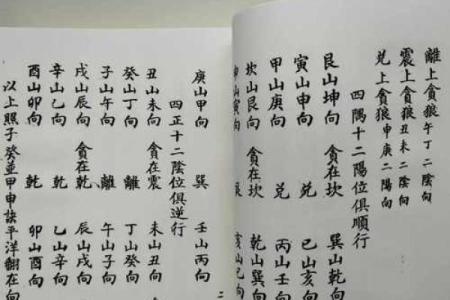 離上貪狼午丁二陰向
震上貪狼丑未二陰向
兌上貪狼申庚二陽向
四隅十二陽位俱順行
艮山坤向 貪在坎 巽山乾向
寅山申向 兌 巳山亥向
甲山庚向 兌 丙山壬向
坎山艮向 貪在坎 乾山巽向
山寅向 亥山巳向
庚山甲向 巽 壬山丙向
四正十二陰位俱逆行
丑山未向 貪在震 未山丑向
癸山丁向 離 丁山癸向
子山午向 離 午山子向
戌山辰向 貪在乾 辰山戌向
辛山乙向 乾 乙山辛向
酉山卯向 乾 卯山酉向
以上照子癸並甲申訣平洋翻在向
二